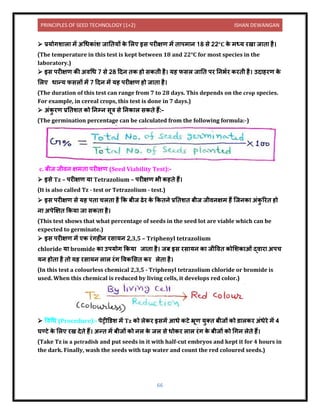 PRINCIPLES OF SEED TECHNOLOGY (1+2) ISHAN DEWANGAN
➢ प्रयोगशाला में अधिकांश जातियों के लिए इस परीक्षण में तापमान 18 से 22°C के मध्य रखा जाता है।
(The temperature in this test is kept between 18 and 22°C for most species in the
laboratory.)
➢ इस परीक्षण की अवधि 7 से 28 दिन तक हो सकती है। यह फसल जाति पर निर्भर करती है। उदाहरण के
लिए धान्य फसलों में 7 दिन में यह परीक्षण हो जाता है।
(The duration of this test can range from 7 to 28 days. This depends on the crop species.
For example, in cereal crops, this test is done in 7 days.)
➢ अंकुरण प्रतिशत को निम्न सूत्र से निकाल सकते हैं:-
(The germination percentage can be calculated from the following formula:-)
= Total No. of Seeds germinated / Total No. of Seeds × 100
c. बीज जीवन क्षमता परीक्षण (Seed Viability Test):-
➢ इसे Tz – परीक्षण या Tetrazolium – परीक्षण भी कहते हैं।
(It is also called Tz - test or Tetrazolium - test.)
➢ इस परीक्षण से यह पता चलता है कि बीज ढेर के कितने प्रतिशत बीज जीवनक्षम हैं जिनका अंकुरित हो
ना अपेक्षित किया जा सकता है।
(This test shows that what percentage of seeds in the seed lot are viable which can be
expected to germinate.)
➢ इस परीक्षण में एक रंगहीन रसायन 2,3,5 – Triphenyl tetrazolium
chloride या bromide का उपयोग किया जाता है। जब इस रसायन का जीवित कोशिकाओं द्वारा अपच
यन होता है तो यह रसायन लाल रंग विकसित कर लेता है।
(In this test a colourless chemical 2,3,5 - Triphenyl tetrazolium chloride or bromide is
used. When this chemical is reduced by living cells, it develops red color.)
Tz By living cell / Reduction → Red colour
➢ विधि (Procedure):- पेट्रीडिश में Tz को लेकर इसमें आधे कटे भ्रूण युक्त बीजों को डालकर अंधेरे में 4
घण्टे के लिए रख देते हैं। अन्त में बीजों को नल के जल से धोकर लाल रंग के बीजों को गिन लेते हैं।
(Take Tz is a petradish and put seeds in it with half-cut embryos and kept it for 4 hours in
the dark. Finally, wash the seeds with tap water and count the red coloured seeds.)
66